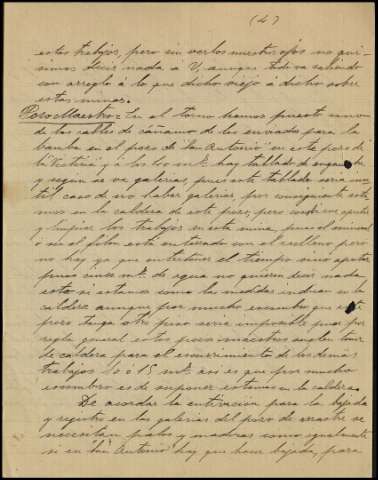 (4)
estos trabajos, pero sin verlos nuestros ojos no qui-
simos decir nada á V, aunque todo va saliendo
con arreglo á lo que dicho viejo á dicho sobre
estas minas.
Pozo Maestro: En el torno hemos puesto uno
de los cables de cáñamo de los enviados para la
bomba en el pozo de "San Antonio" en este pozo de
la "Victoria" y á los 60 mts. hay tablado de enganche
y según se ve galerias, pues este tablado seria inu-
til caso de no haber galerias, por consiguiente esta-
mos en la caldera de este pozo, pero
y limpiar los trabajos en esta mina, pues el mineral
ó sea el filon está enterrado con el relleno pero
no hay ya que entretener el tiempo sino apurar
pues cinco mts. de agua no quieren decir nada
esto si estamos como las medidas indican en la
caldera aunque por mucho escombro que este
pozo tenga otro piso seria imposible pues por
regla general estos pozos maestros suelen tener
de caldera para el escurrimiento de los demás
trabajos 10 ó 15 mts. asi es que por mucho
escombro es de suponer estamos en la caldera.
De acordar la entivación para la bajada
y registro en las galerias del pozo de arrastre se
necesitan palos y maderas como igualmente
si en "San Antonio" hay que hacer bajada, para